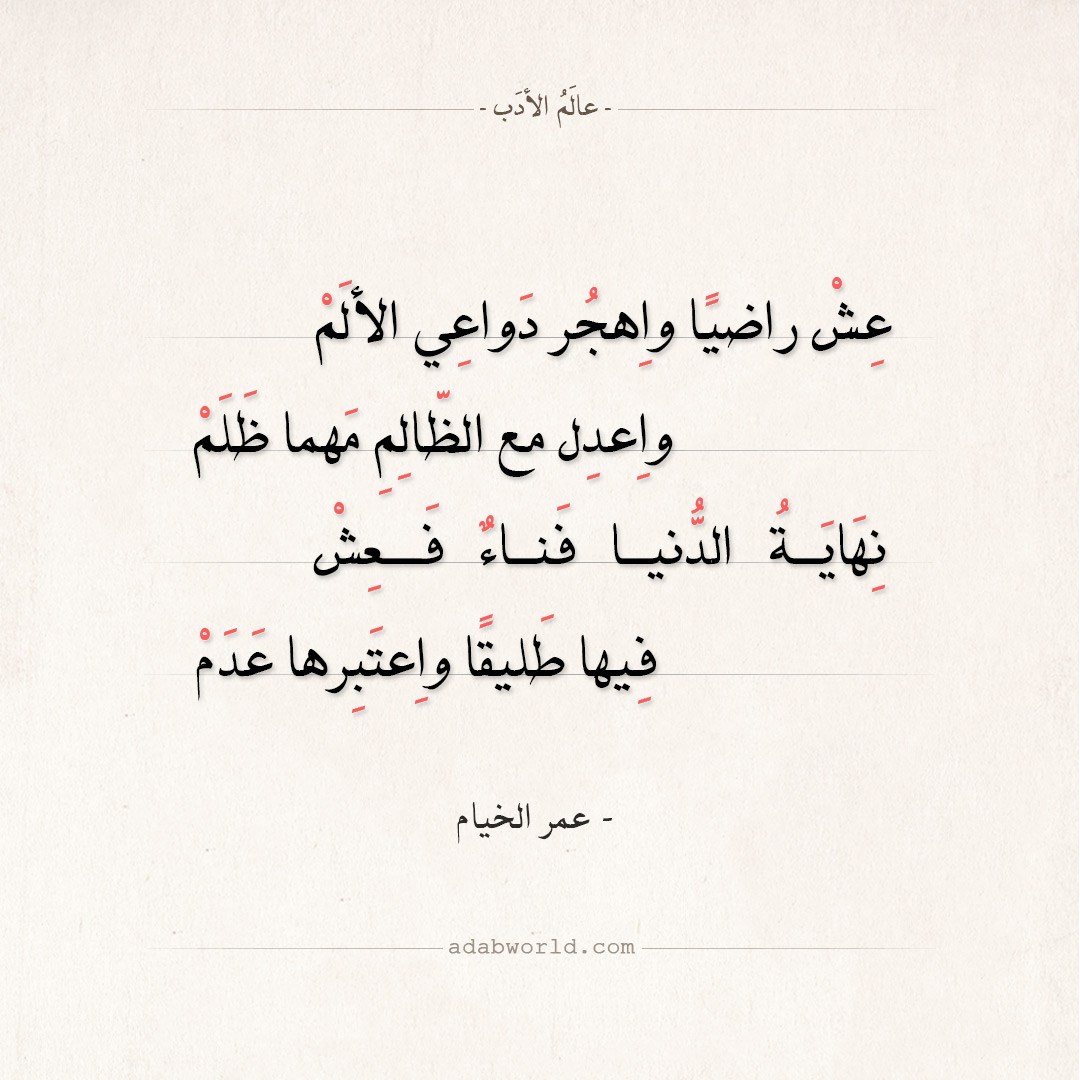 - عالَمُ الأدَب -
عِشْ راضيًا واِهجُر دَواعِي الألَمْ
واِعدِل مع الظّالِمِ مَهما ظَلَمْ
نِهَايَـــةُ الدُّنيـــا فَنـــاءٌ فَـــعِشْ
فِيها طَليقًا واِعتَبِرها عَدَمْ
- عمر الخيام
adabworld.com